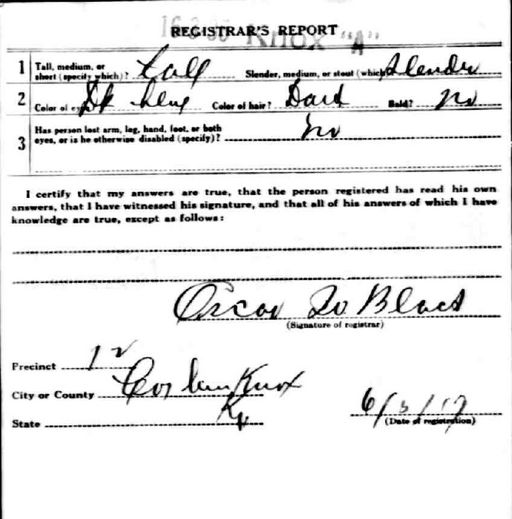 REGISTRAR'S REPORT
Knox "A"
1 Tall, medium, or short (specify which)? Tall Slender, medium, or stout (which)? Slender
2 Color of eyes? Dk Color of hair? Dark Bald? No
3 Has person lost arm, leg, hand, foot, or both eyes, or is he otherwise disabled (specify)? No
I certify that my answers are true, that the person registered has read his own
answers, that I have witnessed his signature, and that all of his answers of which I have
knowledge are true, except as follows:
Oscar W Black
(Signature of registrar)
Precinct 12
City or County Corbin Knox
State Ky
6/5/17
(Date of registration)